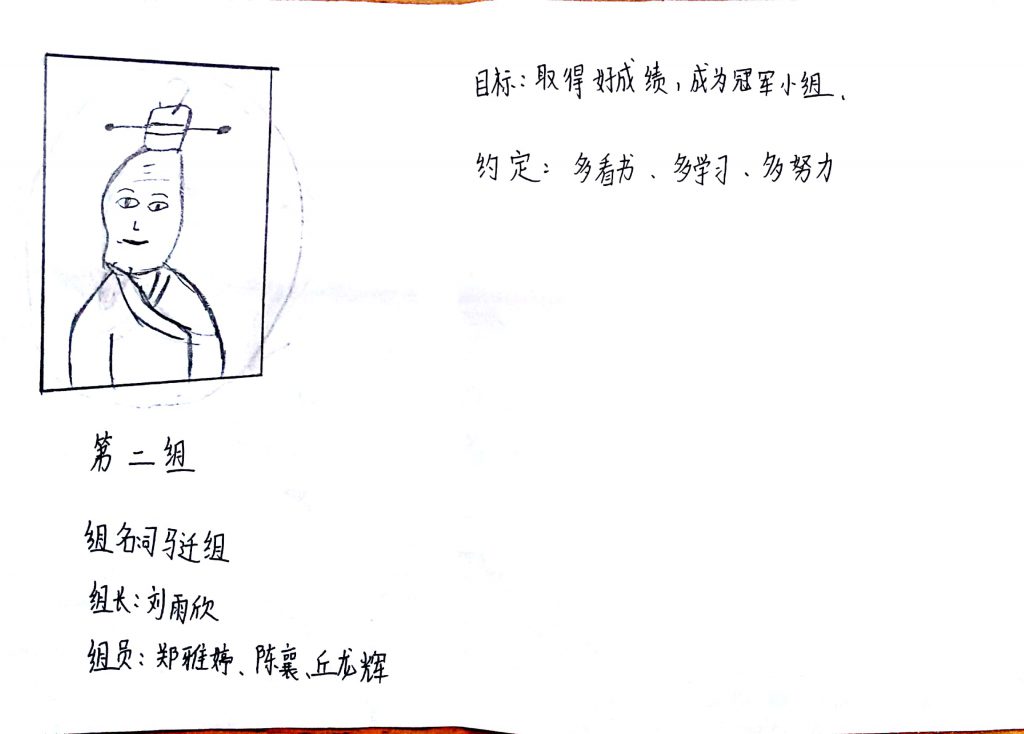 第二组
组名司马迁组
组长：刘雨欣
组员：郑雅婷、陈襄、丘龙辉
目标：取得好成绩，成为冠军小组.
约定：多看书、多学习、多努力